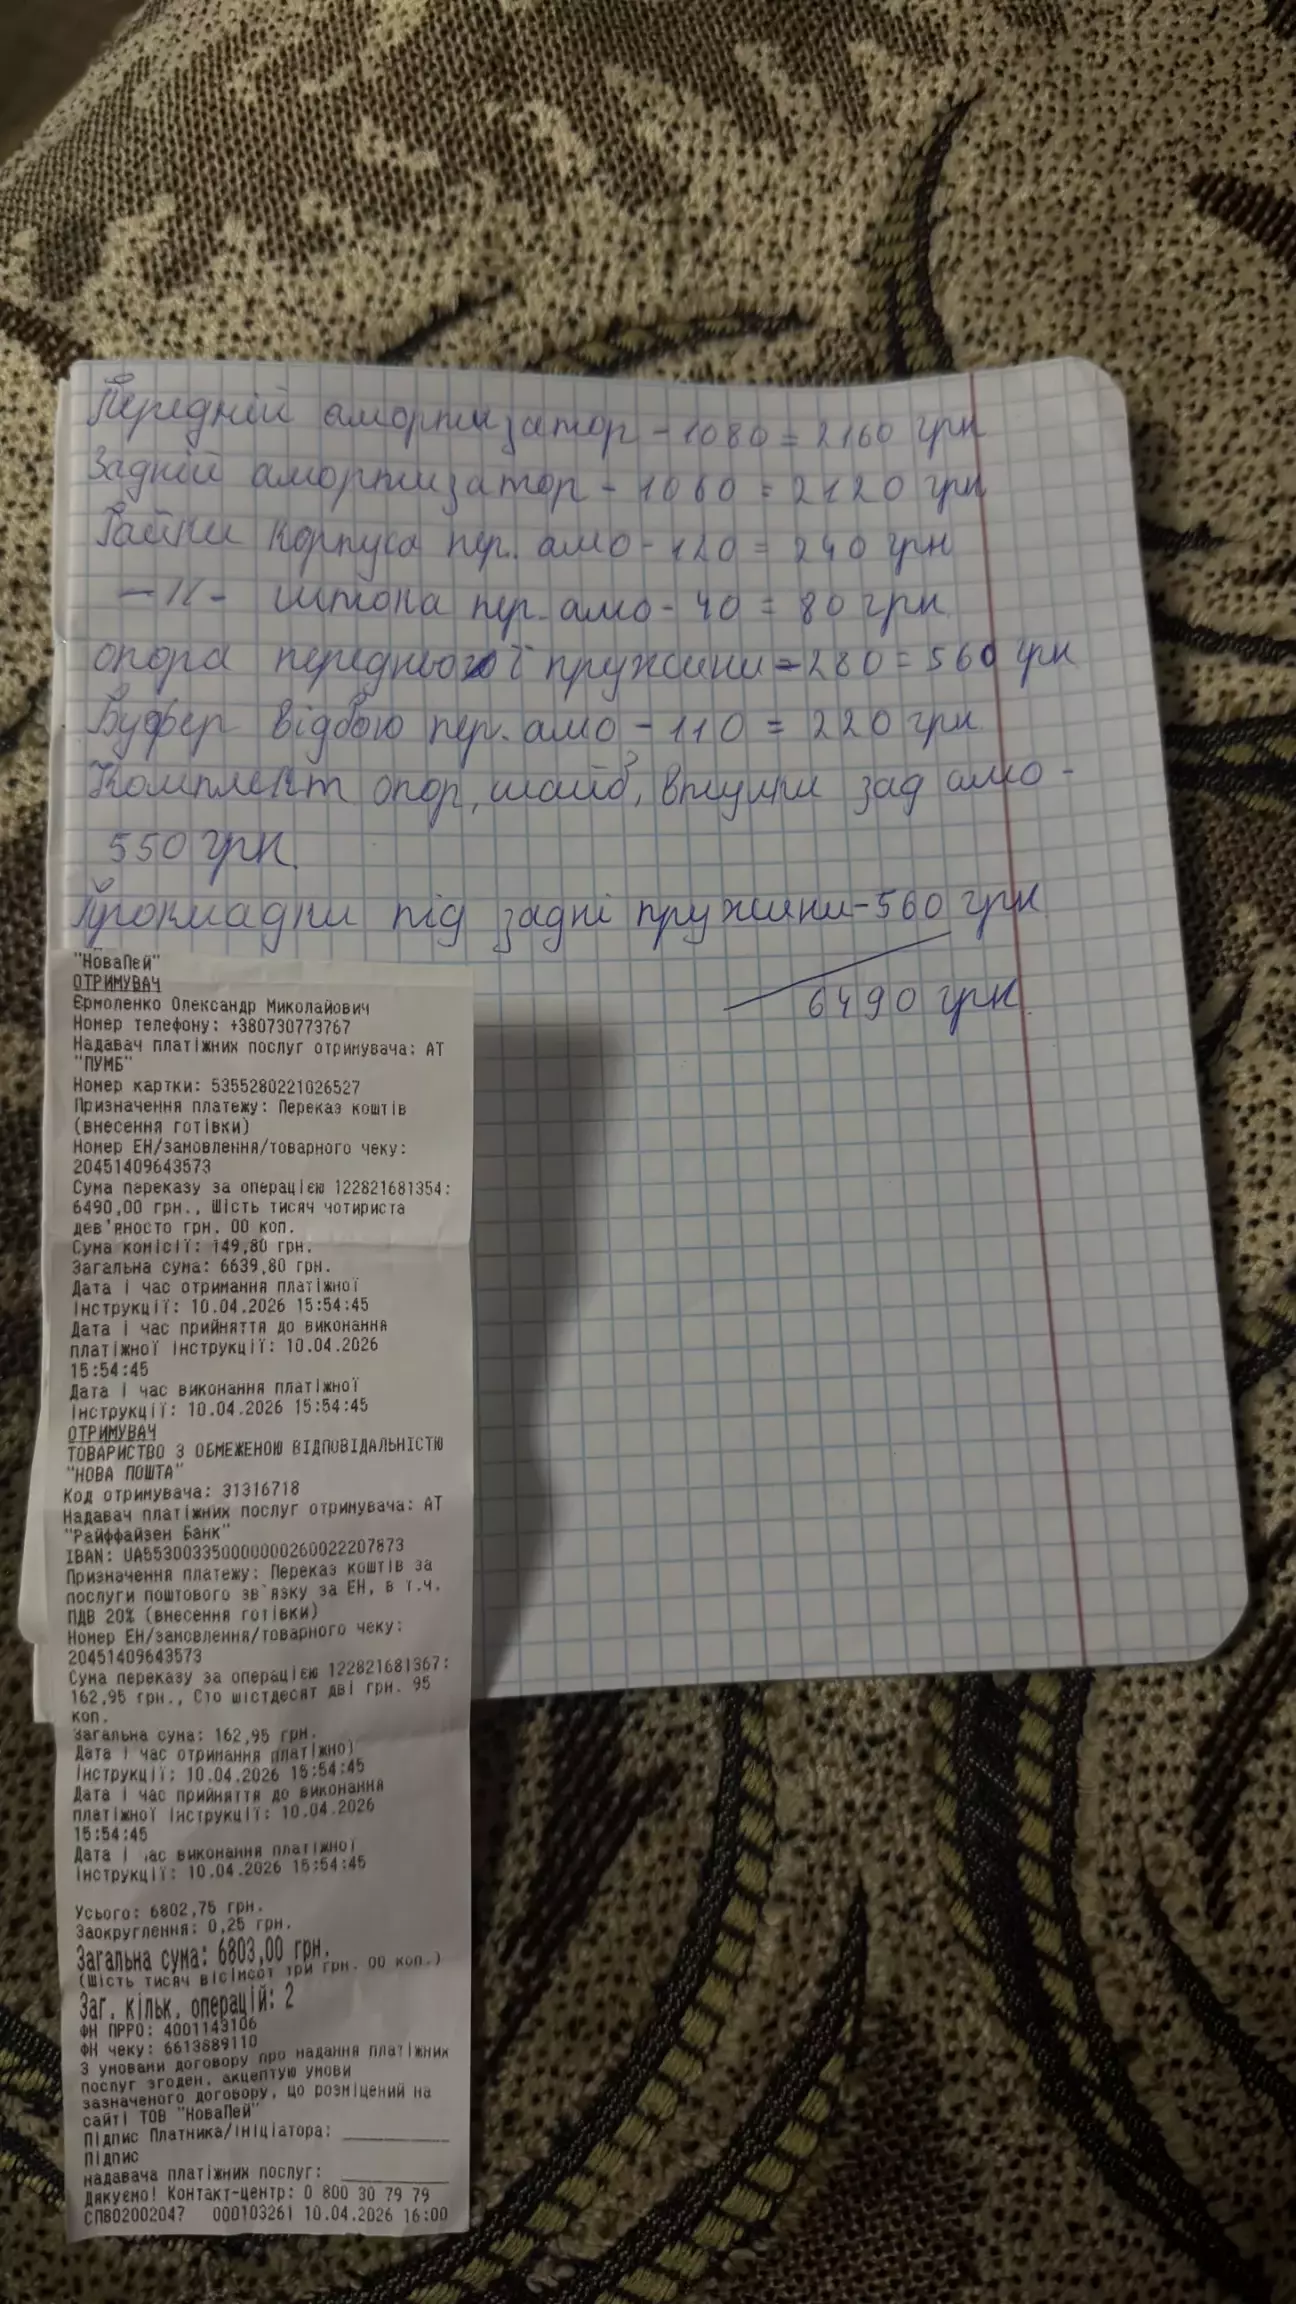 Передній амортизатор - 1080 = 2160 грн
Задній амортизатор - 1060 = 2120 грн
Гайки корпуса пер. амо - 120 = 240 грн
-//- штока пер. амо - 40 = 80 грн
опора передньої пружини - 280 = 560 грн
Буфер відбою пер. амо - 110 = 220 грн
Комплект опор, шайб, втулки зад амо -
550 грн.
Прокладки під задні пружини - 560 грн
6490 грн.
"НоваПей"
ОТРИМУВАЧ
Єрмоленко Олександр Миколайович
Номер телефону: +380730773767
Надавач платіжних послуг отримувача: АТ
"ПУМБ"
Номер картки: 5355280221026527
Призначення платежу: Переказ коштів
(внесення готівки)
Номер ЕН/замовлення/товарного чеку:
20451409643573
Сума переказу за операцією 122821681354:
6490,00 грн., Шість тисяч чотириста
дев'яносто грн. 00 коп.
Сума комісії: 149,80 грн.
Загальна сума: 6639,80 грн.
Дата і час отримання платіжної
інструкції: 10.04.2026 15:54:45
Дата і час прийняття до виконання
платіжної інструкції: 10.04.2026
15:54:45
Дата і час виконання платіжної
інструкції: 10.04.2026 15:54:45
ОТРИМУВАЧ
ТОВАРИСТВО З ОБМЕЖЕНОЮ ВІДПОВІДАЛЬНІСТЮ
"НОВА ПОШТА"
Код отримувача: 31316718
Надавач платіжних послуг отримувача: АТ
"Райффайзен Банк"
IBAN: UA553003350000000260022207873
Призначення платежу: Переказ коштів за
послуги поштового зв`язку за ЕН, в т.ч.
ПДВ 20% (внесення готівки)
Номер ЕН/замовлення/товарного чеку:
20451409643573
Сума переказу за операцією 122821681367:
162,95 грн., Сто шістдесят дві грн. 95
коп.
Загальна сума: 162,95 грн.
Дата і час отримання платіжної
інструкції: 10.04.2026 15:54:45
Дата і час прийняття до виконання
платіжної інструкції: 10.04.2026
15:54:45
Дата і час виконання платіжної
інструкції: 10.04.2026 15:54:45
Усього: 6802,75 грн.
Заокруглення: 0,25 грн.
Загальна сума: 6803,00 грн.
(Шість тисяч вісімсот три грн. 00 коп.)
Заг. кільк. операцій: 2
ФН ПРРО: 4001143106
ФН чеку: 6613889110
З умовами договору про надання платіжних
послуг згоден, акцептую умови
зазначеного договору, що розміщений на
сайті ТОВ "НоваПей"
Підпис Платника/ініціатора:
Підпис
надавача платіжних послуг:
Дякуємо! Контакт-центр: 0 800 30 79 79
СП802002047 000103261 10.04.2026 16:00